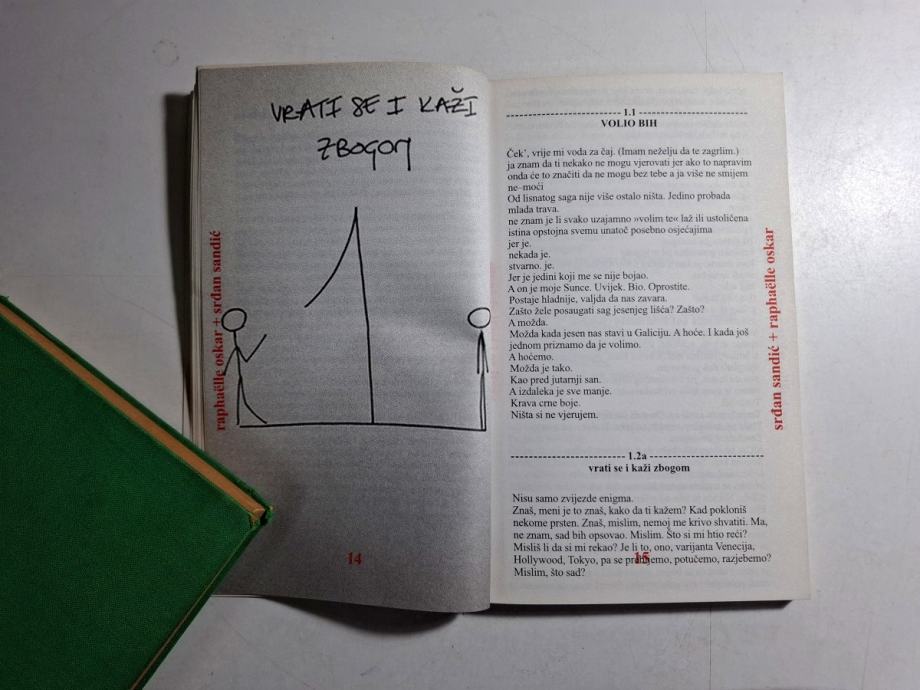 VRATI SE I KAŽI
ZBOGOM
raphaëlle oskar + srđan sandić
14
--------------------------- 1.1 ---------------------------
VOLIO BIH
Ček’, vrije mi voda za čaj. (Imam neželju da te zagrlim.)
ja znam da ti nekako ne mogu vjerovati jer ako to napravim
onda će to značiti da ne mogu bez tebe a ja više ne smijem
ne-moći
Od lisnatog saga nije više ostalo ništa. Jedino probada
mlada trava.
ne znam je li svako uzajamno »volim te« laž ili ustoličena
istina opstojna svemu unatoč posebno osjećajima
jer je.
nekada je.
stvarno. je.
Jer je jedini koji me se nije bojao.
A on je moje Sunce. Uvijek. Bio. Oprostite.
Postaje hladnije, valjda da nas zavara.
Zašto žele posaugati sag jesenjeg lišća? Zašto?
A možda.
Možda kada jesen nas stavi u Galiciju. A hoće. I kada još
jednom priznamo da je volimo.
A hoćemo.
Možda je tako.
Kao pred jutarnji san.
A izdaleka je sve manje.
Krava crne boje.
Ništa si ne vjerujem.
--------------------------- 1.2a ---------------------------
vrati se i kaži zbogom
Nisu samo zvijezde enigma.
Znaš, meni je to znaš, kako da ti kažem? Kad pokloniš
nekome prsten. Znaš, mislim, nemoj me krivo shvatiti. Ma,
ne znam, sad bih opsovao. Mislim. Što si mi htio reći?
Misliš li da si mi rekao? Je li to, ono, varijanta Venecija,
Hollywood, Tokyo, pa se probijemo, potučemo, razjebemo?
Mislim, što sad?
15
srđan sandić + raphaëlle oskar